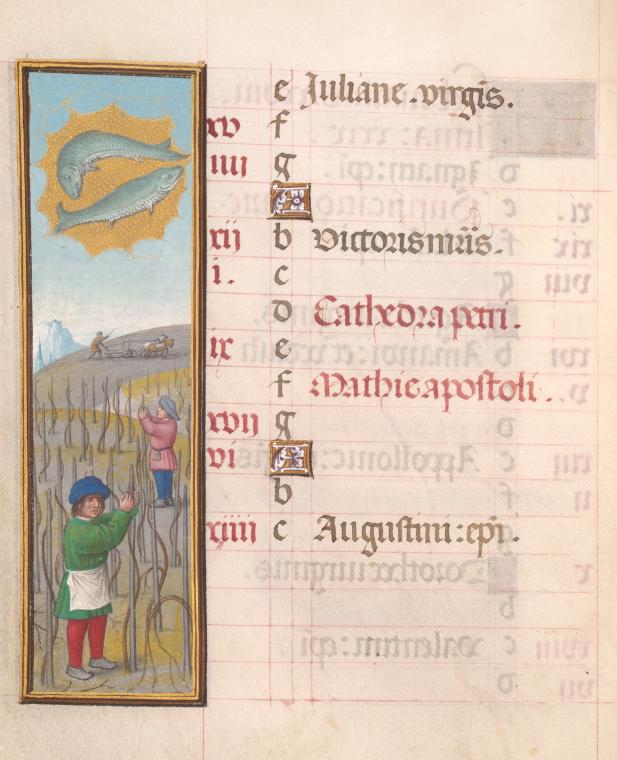 e Juliane . virgis .
xv f
iiii g
A
xii b Victoris mris .
i . c
d Cathedra petri .
ix e
f Mathie apostoli .
xvii g
vi A
b
xiiii c Augustini : epi .